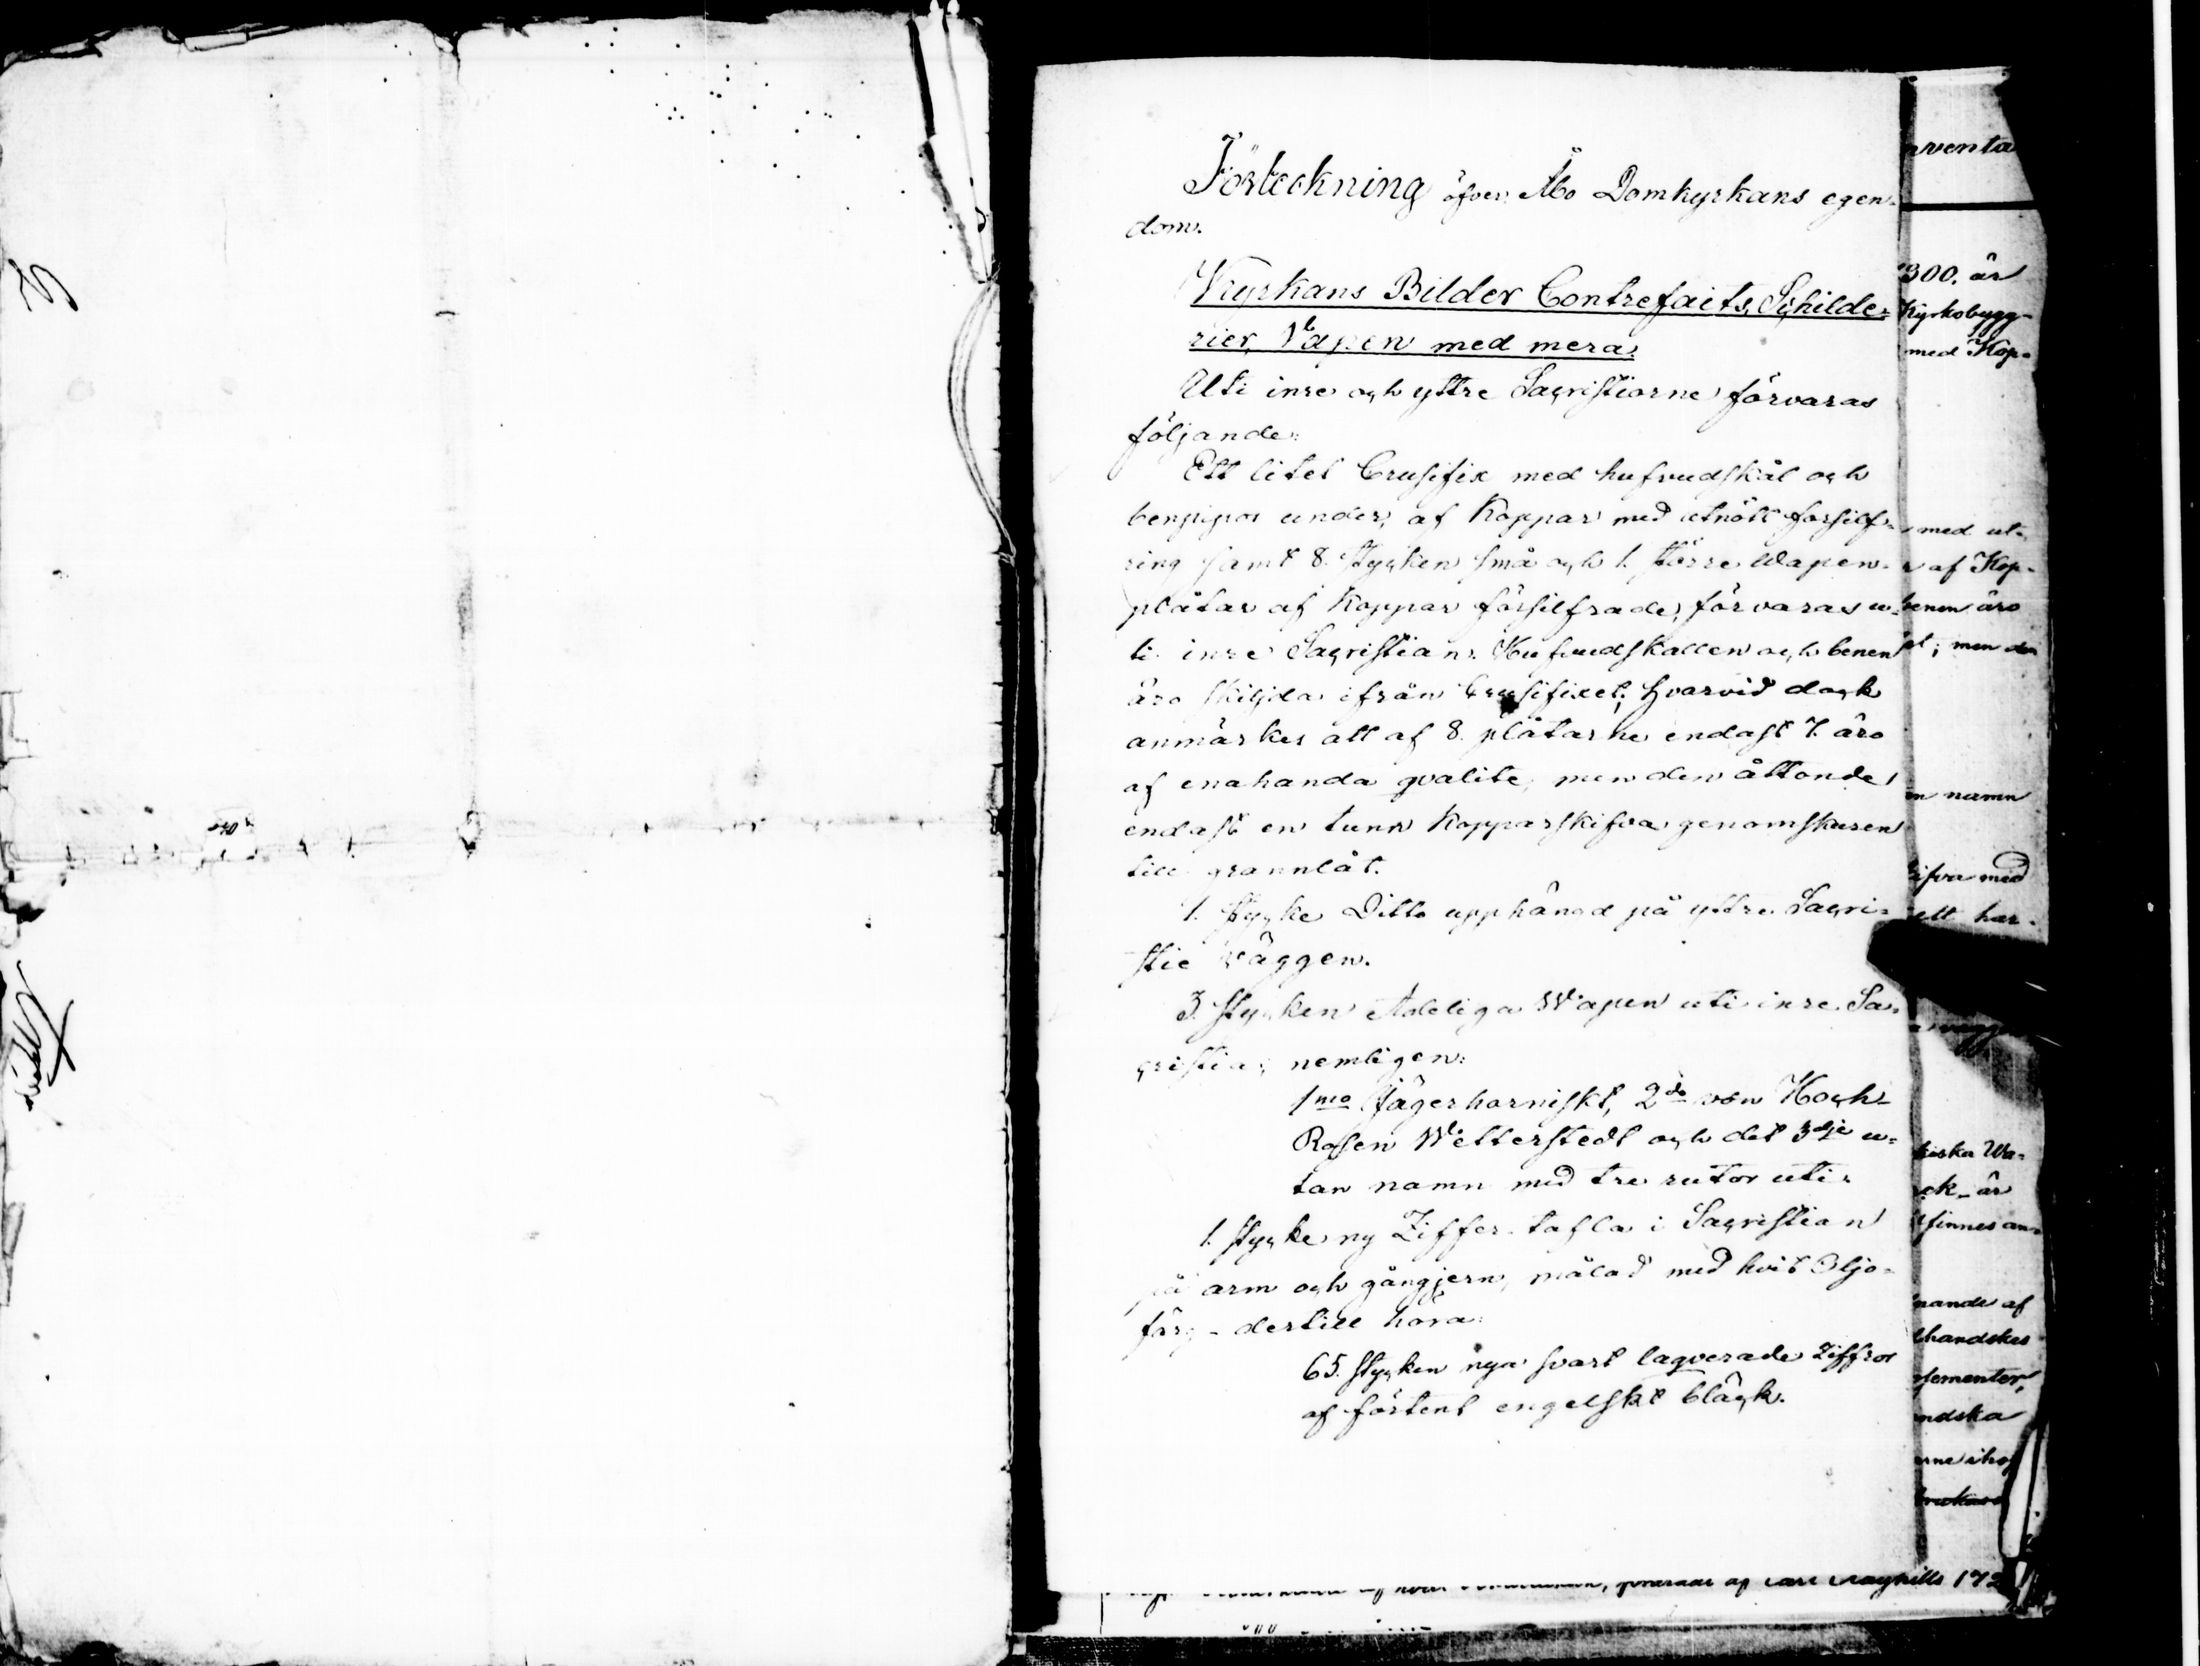 Förteckning öfver Åbo Domkyrkans egen-
dom.
Kyrkans Bilder Contrefaits, Schilde-
rier, Vapen med mera.
Uti inre och yttre Sacristiorne förvaras
följande:
Ett litet Crusifix med hufvudskål och
benpipor under, af Koppar med utnött forsilf-
ring samt 8. stycken små och 1. större Wapen-
plåtar af Koppar försilfrade, förvaras u-
ti inre Sacristian. Hufvudskallen och benen
äro skiljda ifrån Crusifixet; hvarvid dock
anmärkes att af 8. plåtarne endast 7. äro
af enahanda qvalité, men den åttonde
endast en tunn Kopparskifva genomskuren
till grannlåt.
1. stycke Ditto upphängd på yttre Sacri-
stie väggen.
3. stycken Adeliga Wapen uti inre Sa-
cristia; nemligen:
1mo Jägerhorniskt, 2do von Koch-
Rosen Wetterstedt och det 3dje u-
tan namn med tre rutor uti.
1. stycke ny Ziffer-tafla i Sacristian
på arm och gångjern, målad med hvit Oljo-
färg - dertill höra:
65. stycken nya svart lacqverade Ziffror
af förtent engelskt bläck.
nventa
1300. är
Kyrkobygg-
med Kop-
med ut-
af Kop-
benen äro
et; men den
en namn
kifva med
ett har
ck är
finnes an-
nande af
handskes
ementer,
ndska
172